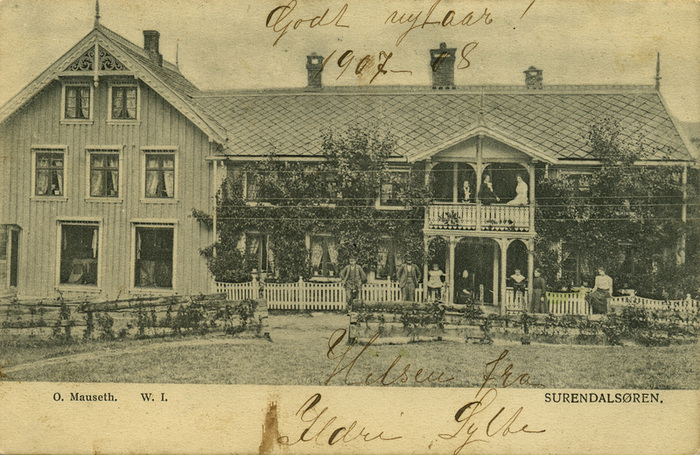 Godt nytaar!
1907-8
Hilsen fra
O. Mauseth. W. I.
SURENDALSØREN.
Ildri Sylte